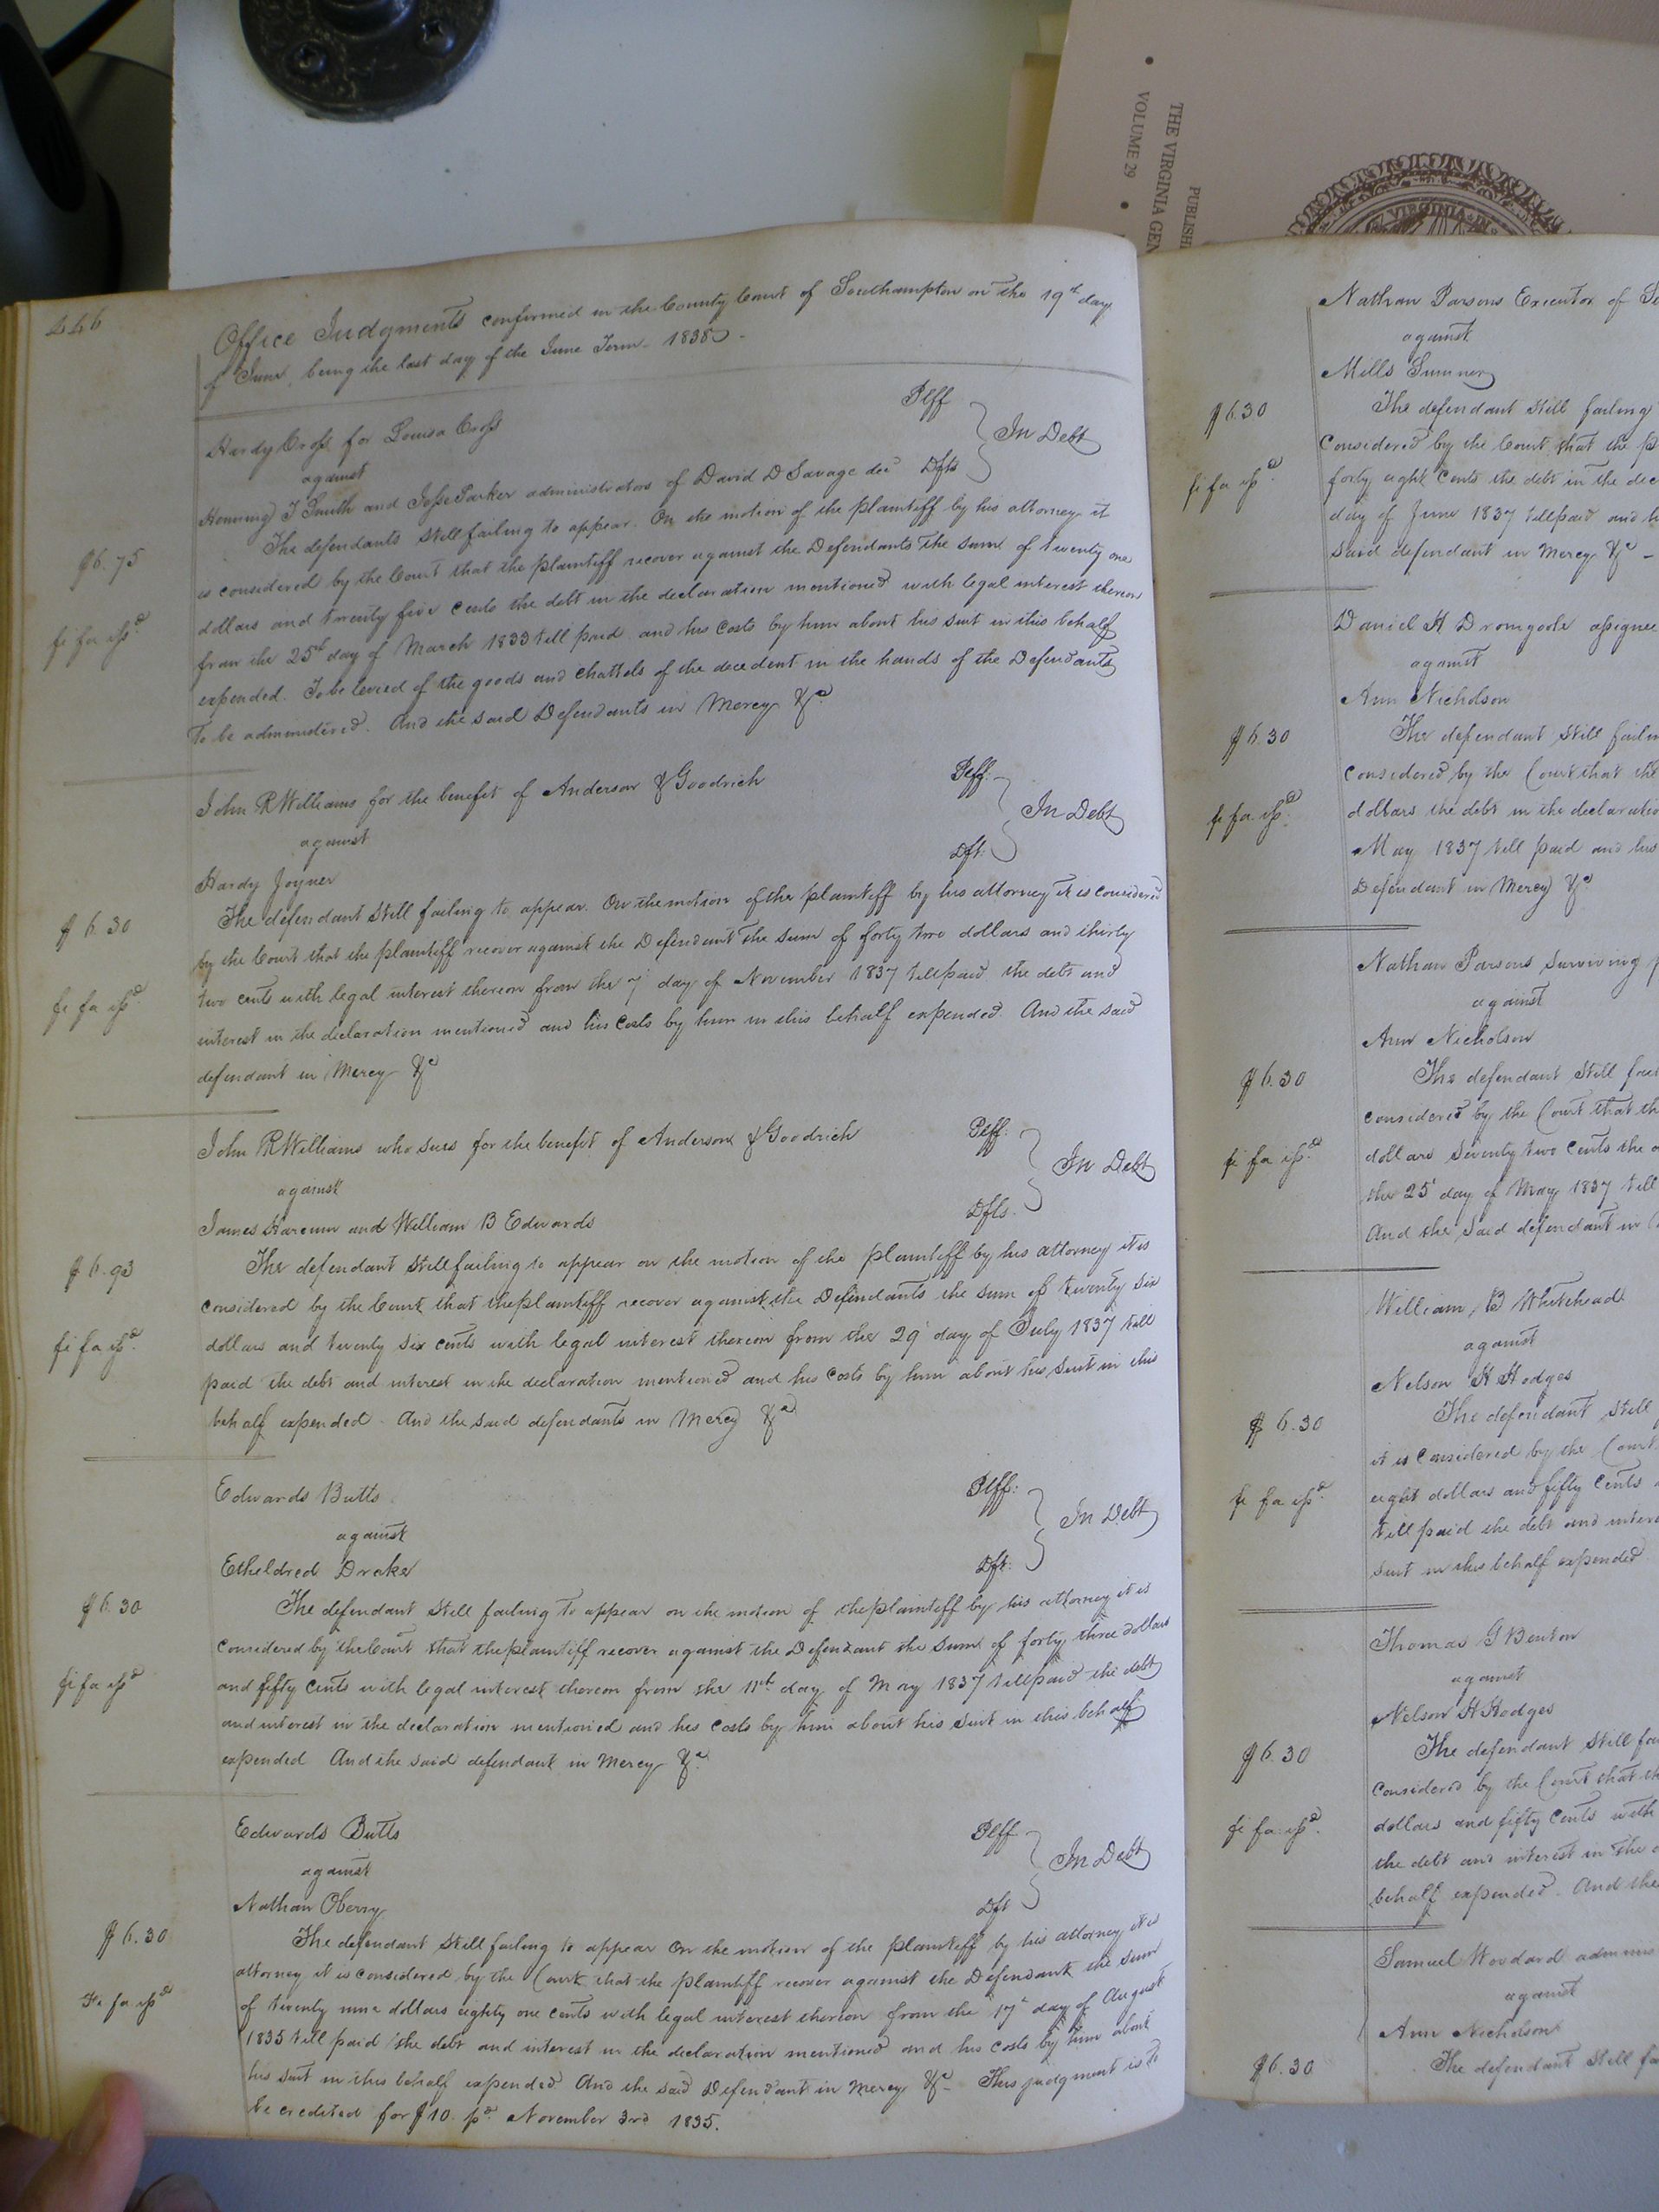 446
Office Judgments confirmed in the County Court of Southampton on the 19th day
of June, being the last day of the June Term - 1838 -
Hardy Cross for Louisa Cross Plff
against In Debt
Henning T Smith and Jesse Parker administrators of David D Savage decd Dfts
The defendants still failing to appear. On the motion of the plaintiff by his attorney it
$6.75
is considered by the Court that the plaintiff recover against the Defendants the sum of twenty one
dollars and twenty five cents the debt in the declaration mentioned with legal interest thereon
fi fa issd
from the 25th day of March 1833 till paid and his costs by him about his suit in this behalf
expended. To be levied of the goods and chattels of the decedent in the hands of the Defendants
To be administered. And the said Defendants in Mercy &c
John R Williams for the benefit of Anderson & Goodrich Plff.
against In Debt
Hardy Joyner Dft.
The defendant still failing to appear. On the motion of the plaintiff by his attorney it is considered
$6.30
by the Court that the plaintiff recover against the Defendant the sum of forty two dollars and thirty
two cents with legal interest thereon from the 7 day of November 1837 till paid the debt and
fi fa issd
interest in the declaration mentioned and his costs by him in this behalf expended. And the said
defendant in Mercy &c
John R Williams who sues for the benefit of Anderson & Goodrich Plff.
against In Debt
James and William B Edwards Dfts.
The defendant still failing to appear on the motion of the plaintiff by his attorney it is
$6.93
considered by the Court that the plaintiff recover against the Defendants the sum of twenty six
dollars and twenty six cents with legal interest thereon from the 29 day of July 1837 till
fi fa issd
paid the debt and interest in the declaration mentioned and his costs by him about his suit in this
behalf expended. And the said defendants in Mercy &c
Edwards Butts Plff.
against In Debt
Etheldred Drake Dft.
The defendant still failing to appear on the motion of the plaintiff by his attorney it is
$6.30
considered by the Court that the plaintiff recover against the Defendant the sum of forty three dollars
and fifty cents with legal interest thereon from the 11th day of May 1837 till paid the debt
fi fa issd
and interest in the declaration mentioned and his costs by him about his suit in this behalf
expended And the said defendant in Mercy &c
Edwards Butts Plff
against In Debt
Nathan Oberry Dft
The defendant still failing to appear On the motion of the plaintiff by his attorney it is
$6.30
attorney it is considered by the Court that the plaintiff recover against the Defendant the sum
of twenty nine dollars eighty one cents with legal interest thereon from the 17th day of August
Fi fa issd
1835 till paid the debt and interest in the declaration mentioned and his costs by him about
his suit in this behalf expended And the said Defendant in Mercy &c - This judgment is to
be credited for $10 pd November 3rd 1835.
THE VIRGINIA GEN
VOLUME 29
PUBLISH
VIRGINIA
Nathan Parsons Executor of
against
Mills Sumner
$6.30
The defendant still failing
considered by the Court that the
fi fa issd
forty eight cents the debt in the dec
day of June 1837 till paid and
said defendant in Mercy &c -
Daniel H Dromgoole assignee
against
Ann Nicholson
$6.30
The defendant still failin
considered by the Court that the
fi fa issd
dollars the debt in the declaratio
May 1837 till paid and his
Defendant in Mercy &c
Nathan Parsons surviving
against
Ann Nicholson
$6.30
The defendant still fail
considered by the Court that th
fi fa issd
dollars seventy two cents the
the 25 day of May 1837 till
And the said defendant in
William B Whitehead
against
Nelson H Hodges
$6.30
The defendant still
it is considered by the Court
fi fa issd
eight dollars and fifty cents
till paid the debt and inter
suit in this behalf expended
Thomas G Benton
against
Nelson H Hodges
$6.30
The defendant still fa
considered by the Court that th
fi fa issd
dollars and fifty cents with
the debt and interest in the
behalf expended. And the
Samuel Woodard adminis
against
Ann Nicholson
$6.30
The defendant still fa